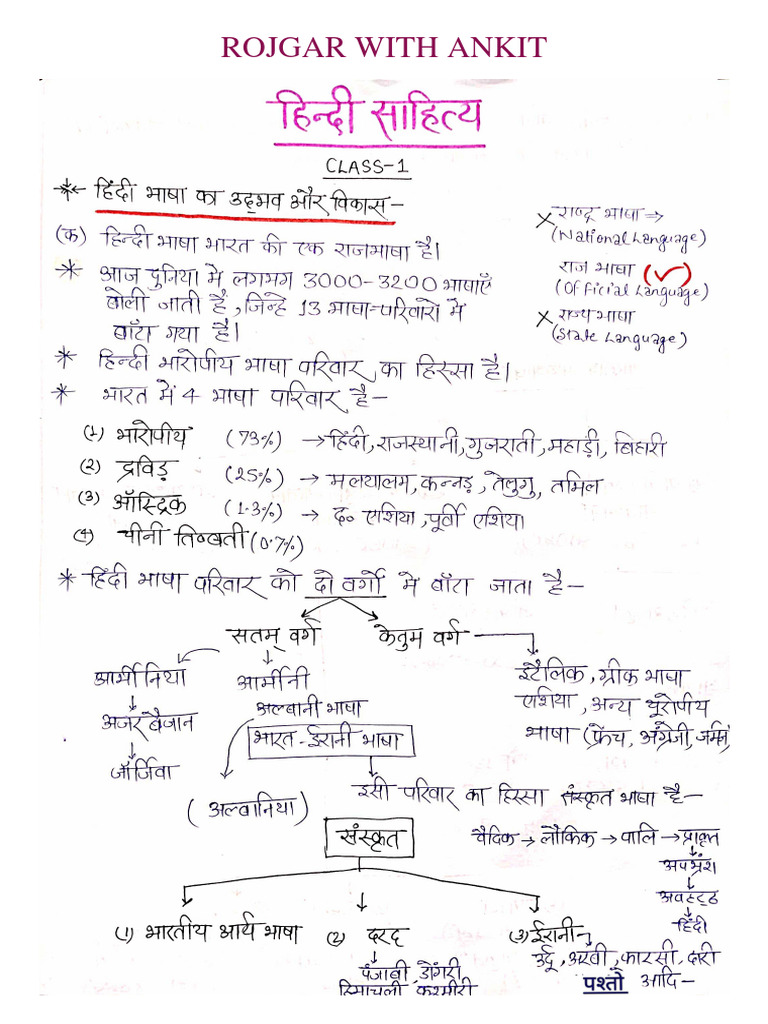 ROJGAR WITH ANKIT
हिन्दी साहित्य
CLASS-1
* हिंदी भाषा का उद्भव और विकास-
(क) हिन्दी भाषा भारत की एक राजभाषा है।
* आज दुनिया में लगभग 3000-3200 भाषाएँ
बोली जाती है, जिन्हे 13 भाषा-परिवारो में
बाँटा गया है।
× राष्ट्र भाषा ⇒
(National Language)
राज भाषा (✓)
(Official Language)
× राज्य भाषा
(State Language)
* हिन्दी भारोपीय भाषा परिवार का हिस्सा है।
* भारत में 4 भाषा परिवार है-
(1) भारोपीय (73%) → हिंदी, राजस्थानी, गुजराती, महाड़ी, बिहारी
(2) द्रविड़ (25%) → मलयालम, कन्नड़, तेलुगु, तमिल
(3) ऑस्ट्रिक (1.3%) → द० एशिया, पूर्वी एशिया
(4) चीनी तिब्बती (0.7%)
* हिंदी भाषा परिवार को दो वर्गो में बाँटा जाता है-
सतम् वर्ग केतुम वर्ग
आर्मीनिया
↓
अजरबैजान
↓
जॉर्जिया
आर्मीनी
अल्बानी भाषा
भारत-ईरानी भाषा
(अल्बानिया)
इटैलिक, ग्रीक भाषा
एशिया, अन्य यूरोपीय
भाषा (फ्रेंच, अंग्रेजी, जर्मन)
इसी परिवार का हिस्सा संस्कृत भाषा है-
संस्कृत
वैदिक → लौकिक → पालि → प्राकृत
↓
अपभ्रंश
↓
अवहट्ठ
↓
हिंदी
(1) भारतीय आर्य भाषा (2) दरद (3) ईरानी-
पंजाबी, डोंगरी
हिमाचली कश्मीरी
उर्दू, अरबी, फारसी, दारी
पश्तो आदि-